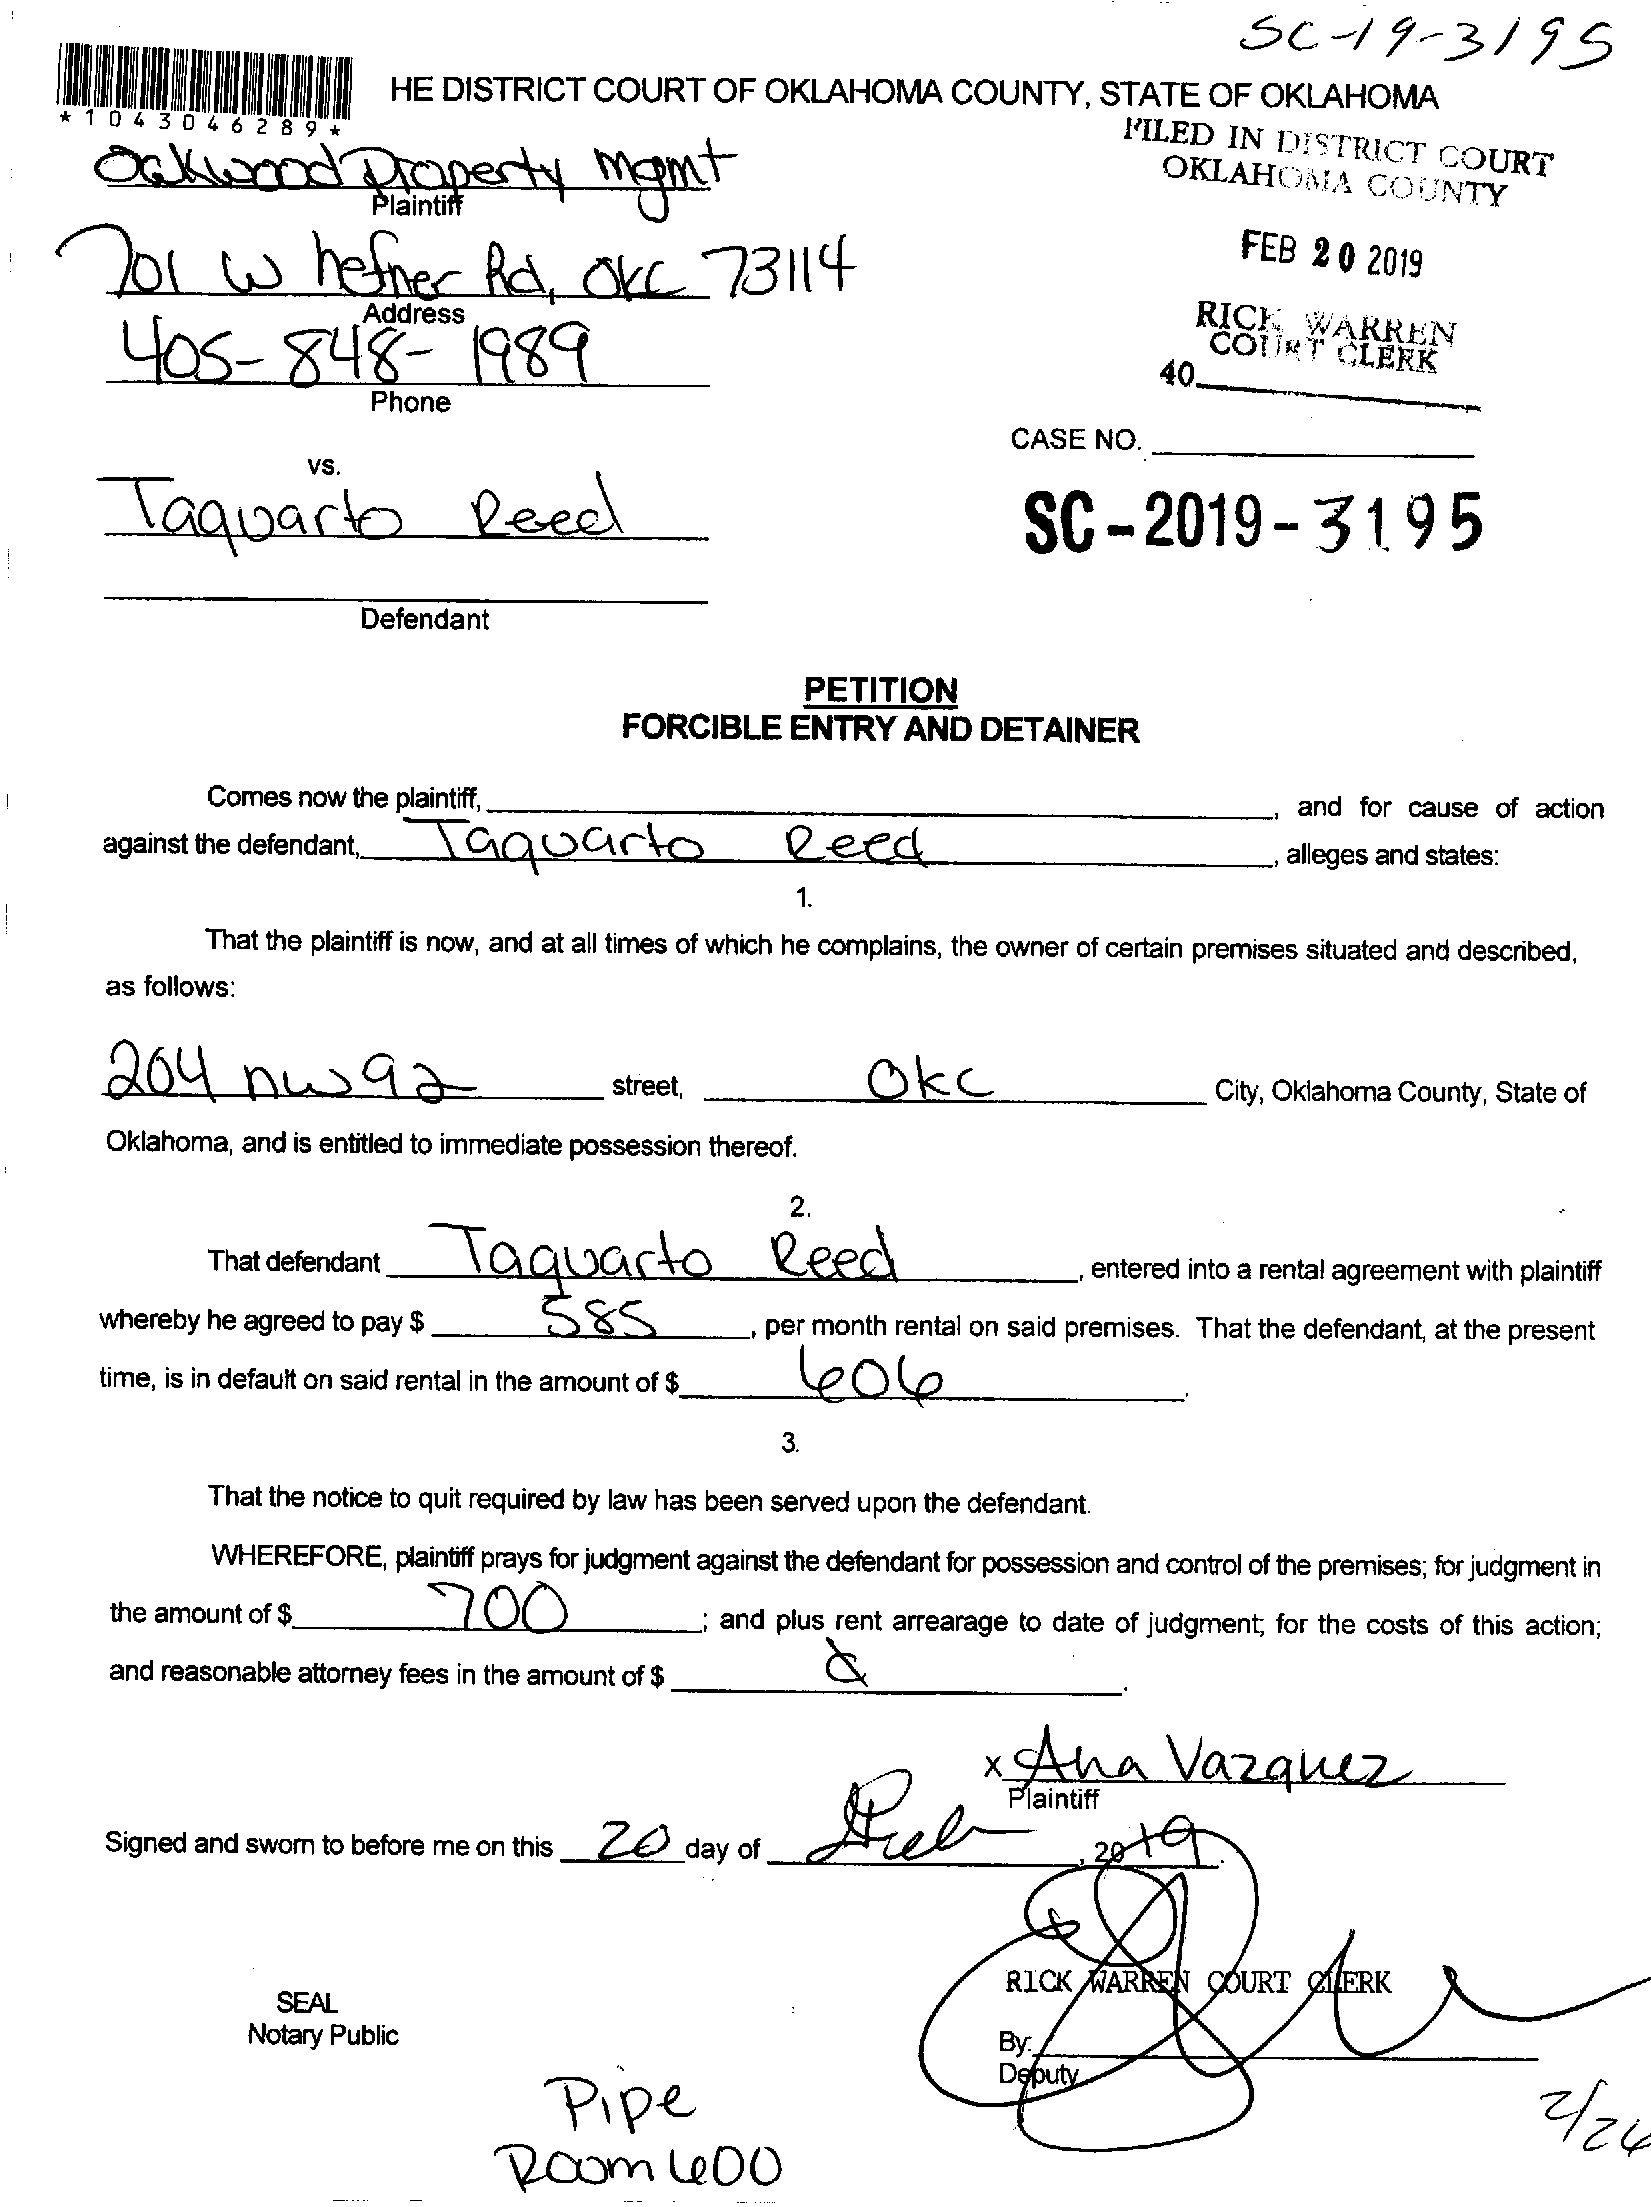 SC-19-3195
*1043046289*
HE DISTRICT COURT OF OKLAHOMA COUNTY, STATE OF OKLAHOMA
FILED IN DISTRICT COURT
OKLAHOMA COUNTY
Oakwood Property Mgmt
Plaintiff
FEB 20 2019
701 W hefner Rd, OKC 73114
Address
RICK WARREN
COURT CLERK
405-848-1989
40
Phone
CASE NO.
vs.
Taquarto Reed
SC-2019-3195
Defendant
PETITION
FORCIBLE ENTRY AND DETAINER
Comes now the plaintiff, , and for cause of action
against the defendant, Taquarto Reed , alleges and states:
1.
That the plaintiff is now, and at all times of which he complains, the owner of certain premises situated and described,
as follows:
204 nw 92 street, OKC City, Oklahoma County, State of
Oklahoma, and is entitled to immediate possession thereof.
2.
That defendant Taquarto Reed , entered into a rental agreement with plaintiff
whereby he agreed to pay $ 585 , per month rental on said premises. That the defendant, at the present
time, is in default on said rental in the amount of $ 606 .
3.
That the notice to quit required by law has been served upon the defendant.
WHEREFORE, plaintiff prays for judgment against the defendant for possession and control of the premises; for judgment in
the amount of $ 700 ; and plus rent arrearage to date of judgment; for the costs of this action;
and reasonable attorney fees in the amount of $ .
x Ana Vazquez
Plaintiff
Signed and sworn to before me on this 20 day of Feb , 2019.
RICK WARREN COURT CLERK
SEAL
Notary Public
By:
Deputy
Pipe
Room 600
2/26